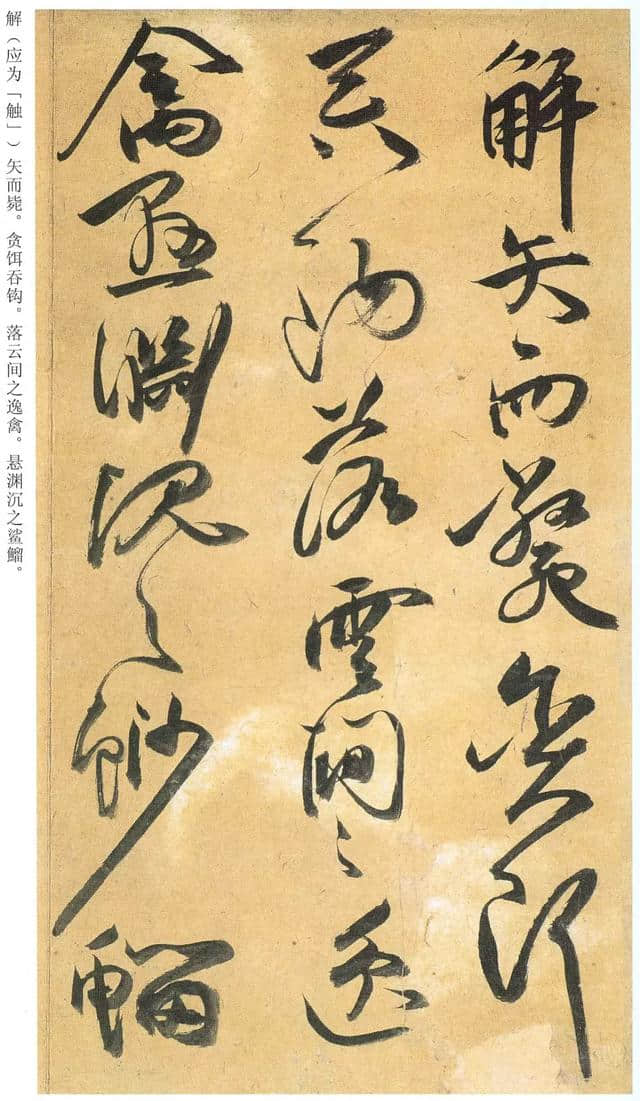 解矢而毙贪饵
吞鈎落雲間之逸
禽懸淵沉之鯊鰡
解（应为「触」）矢而毙。贪饵吞钩。落云间之逸禽。悬渊沉之鲨鰡。